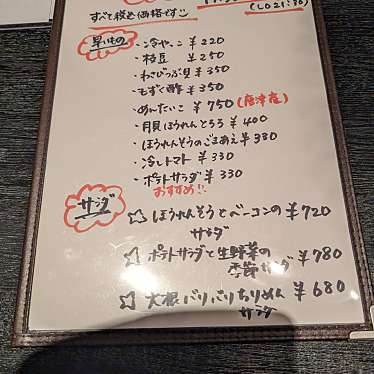 すべて税込価格です
(LO21:30)
早いもの
・冷やっこ ¥220
・枝豆 ¥250
・わさびつぶ貝 ¥350
・もずく酢 ¥350
・めんたいこ ¥750(唐津産)
・月見ほうれんとろろ ¥400
・ほうれんそうのごまあえ ¥380
・冷しトマト ¥330
・ポテトサラダ ¥330
おすすめ!!
サラダ
☆ほうれんそうとベーコンの ¥720
サラダ
☆ポテトサラダと生野菜の ¥780
季節サラダ
☆大根バリバリちりめん ¥680
サラダ